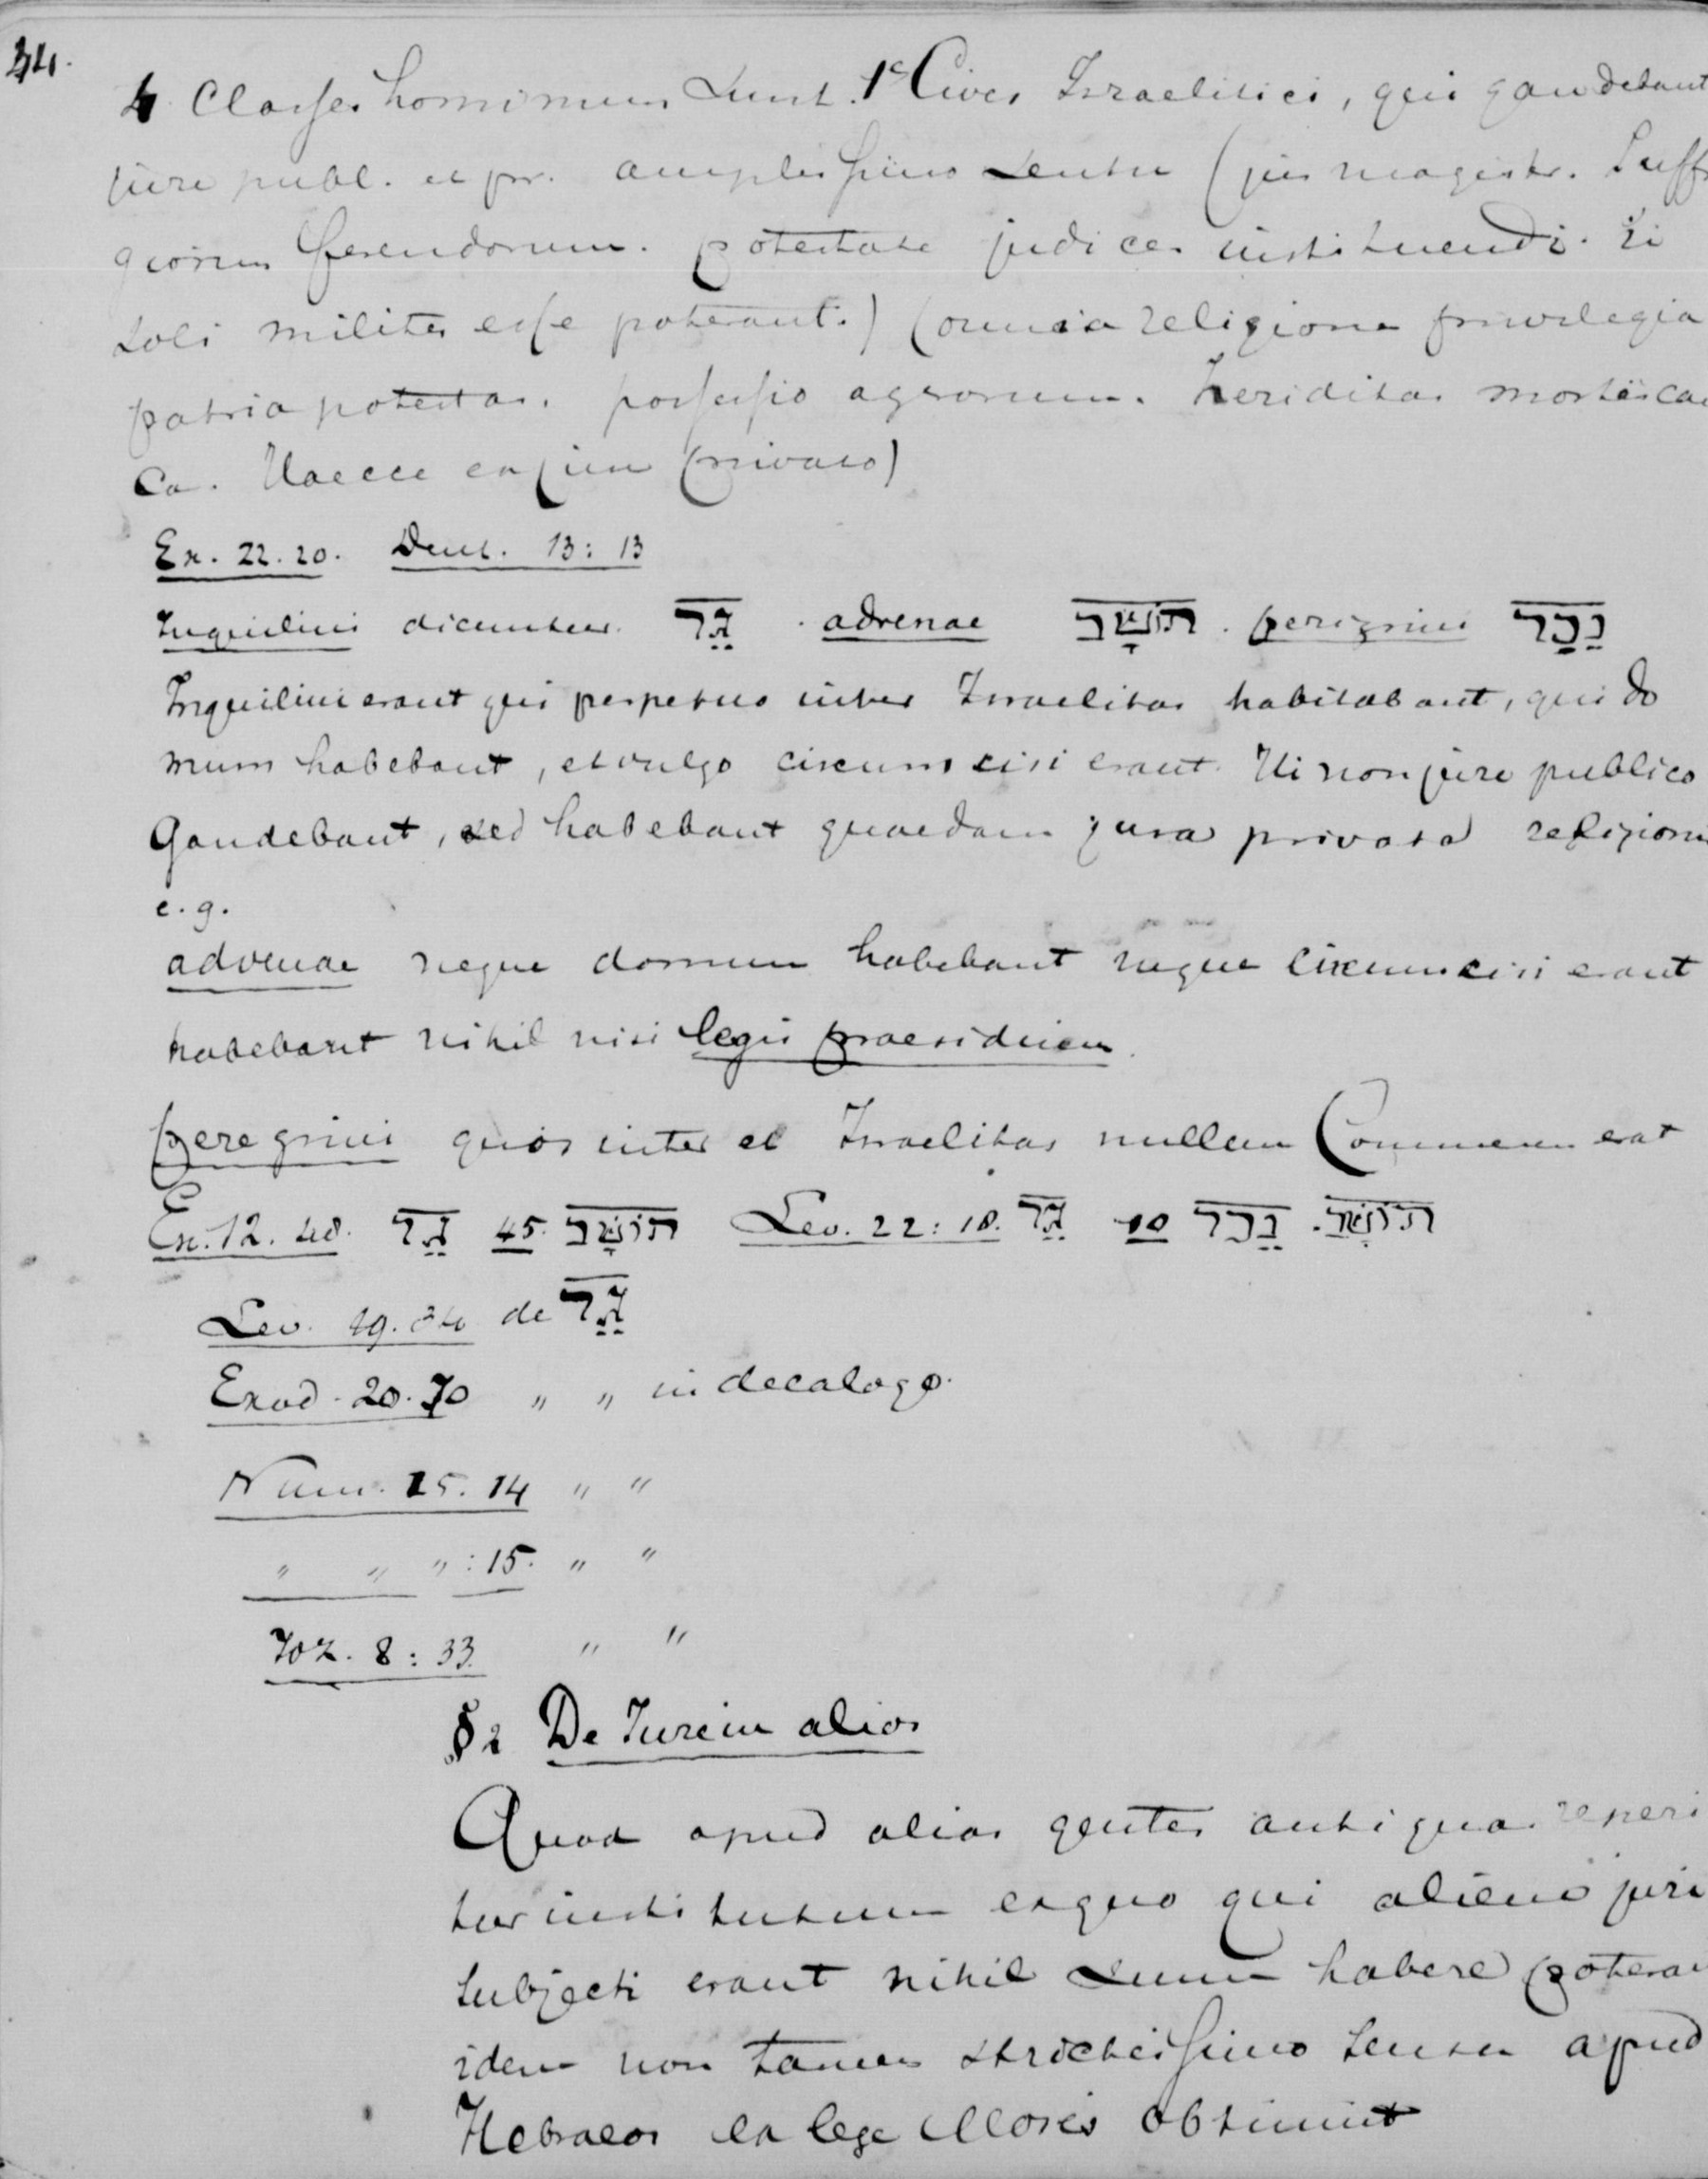 34.
4 Classes hominum sunt. 1° Cives Israelitici, qui gaudebant
jure publ. et pr. amplissimo sensu (jus magistr. Suffra
giorum ferendorum. potestate judices instituendi. Ii
soli milites esse poterant.) (omnia religionis privilegia
patria potestas. possessio agrorum. heriditas mortis cau
ca. Haecce ex jure privato)
Ex. 22.20. Deut. 13:13
Inquilini dicuntur גֵּר . advenae תושָׁב . perigrini נֵכָר
Inquilini erant qui perpetuo inter Israelitas habitabant, qui do
mum habebant, et vulgo circumcisi erant. Hi non jure publico
Gaudebant, sed habebant quaedam jura privata religionis
e.g.
advenae neque domum habebant neque circumcisi erant
habebant nihil nisi legis praesidium.
peregrini quos inter et Israelitas nullum Commune erat
Ex. 12. 48. גֵּר 45. תושָׁב Lev. 22:18. גֵּר 10 נֵכָר . תושָׁב
Lev. 19.34 de גֵּר
Exod. 20.10 " " in decalogo.
Num. 15.14 " "
" " " :15. " "
Joz. 8:33. " "
§2 De Jure in alios
Quod apud alias gentes antiquas reperi
tur institutum ex quo qui alieno juri
subjecti erant nihil suum habere poteran
idem non tamen strictissimo sensu apud
Hebraeos ex lege Mosis obtinuit